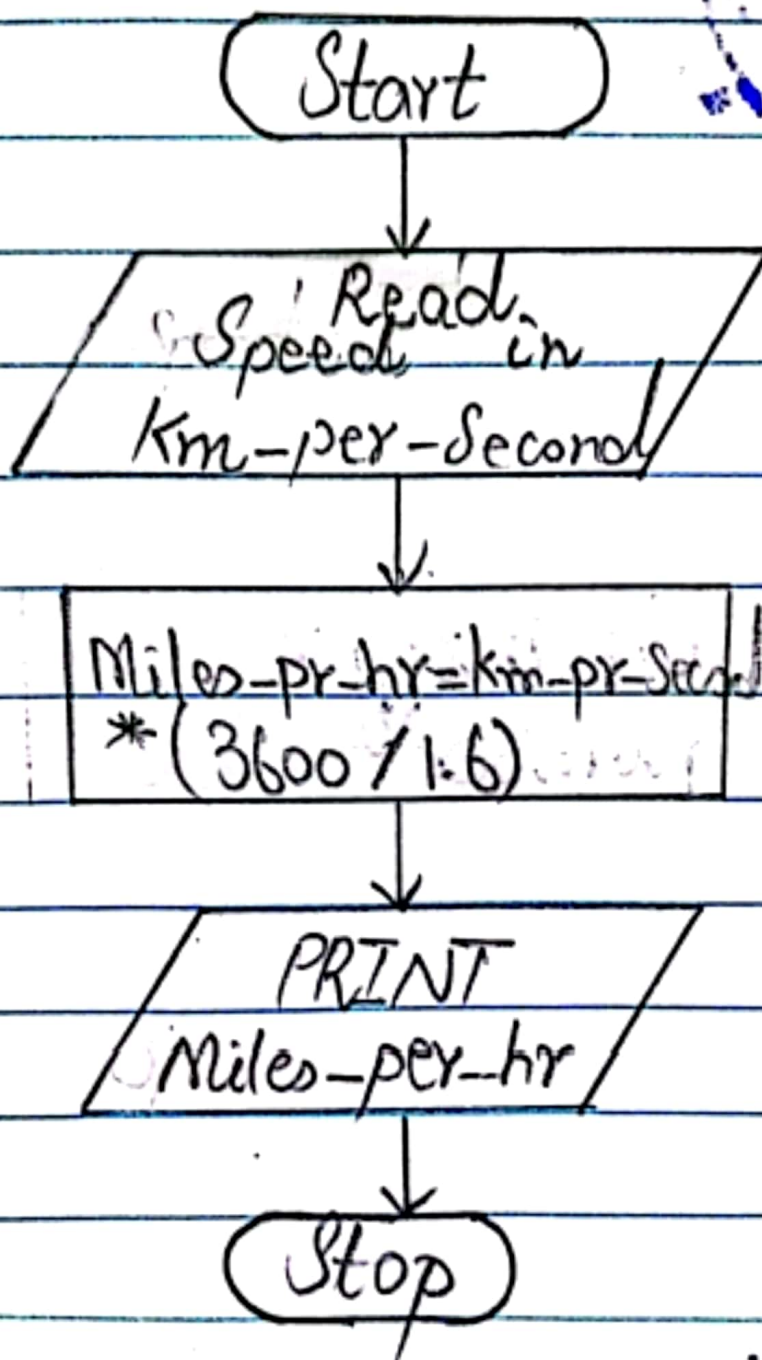 Start
Read
Speed in
Km-per-Second
Miles-pr-hr=km-pr-Second
*(3600/1.6)
PRINT
Miles-per-hr
Stop